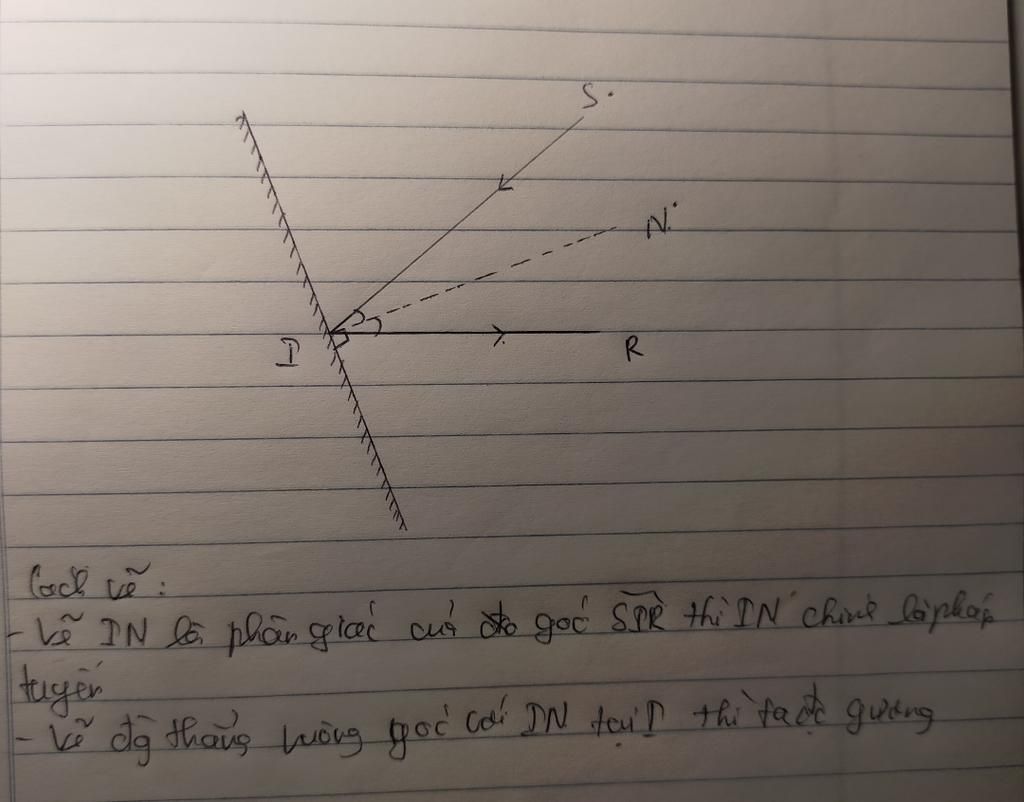 S
N
I
R
Cách vẽ:
- Vẽ IN là phân giác của góc SIR thì IN chính là pháp
tuyến
- Vẽ đg thẳng vuông góc với IN tại I thì ta đc gương